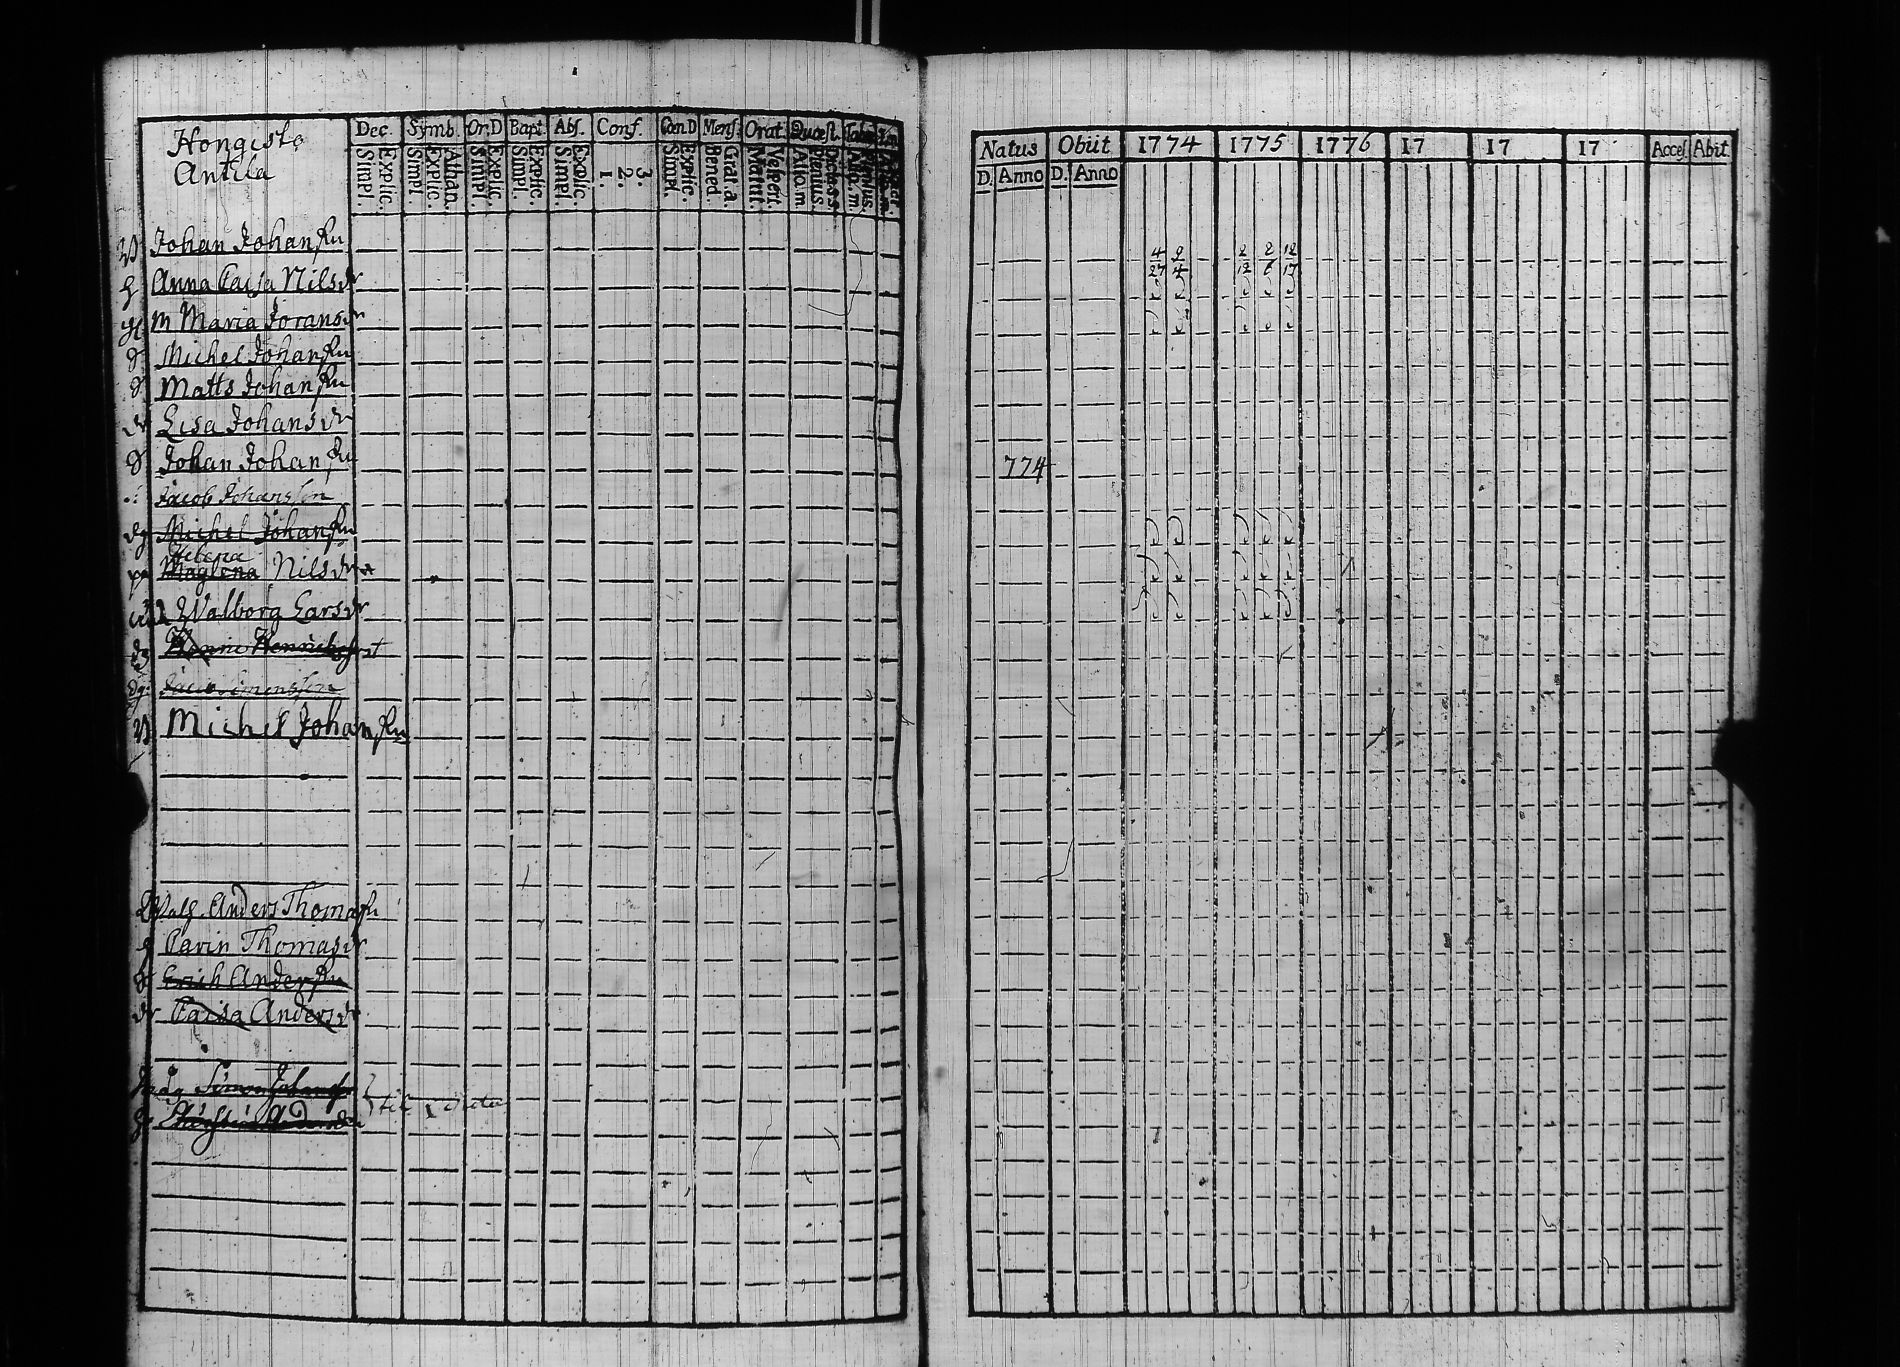 Hongisto
Antila
Dec. Symb. Or.D Bapt. Abs. Conf. Cœn.D Mens. Orat. Quæst.
Simpl. Explic. Simpl. Explic. Athan. Simpl. Explic. Simpl. Explic. Simpl. Explic. 1. 2. 3. Simpl. Explic. Bened. Grat. a. Matut. Vespert. Alio. m. Plenius.
Johan Johansßn
h Anna Caisa Nilsdr
M Maria Joransdr
S Michel Johansßn
S Matts Johansßn
dr Lisa Johansdr
S Johan Johansßn
Jacob Johansson
dg Michel Johansßn
Helena
Maglena Nilsdr
Walborg Larsdr
dg Henric Henrichs
dg: Simonsson
Michel Johansßn
Anders Thomasßn
h Carin Thomasdr
S Erich Andersßn
dr Caisa Andersdr
Simon Johansßn
Natus Obiit 1774 1775 1776 17 17 17 Acces Abit.
D. Anno D. Anno
4 2 2 2 12
27 4 12 6 17
774